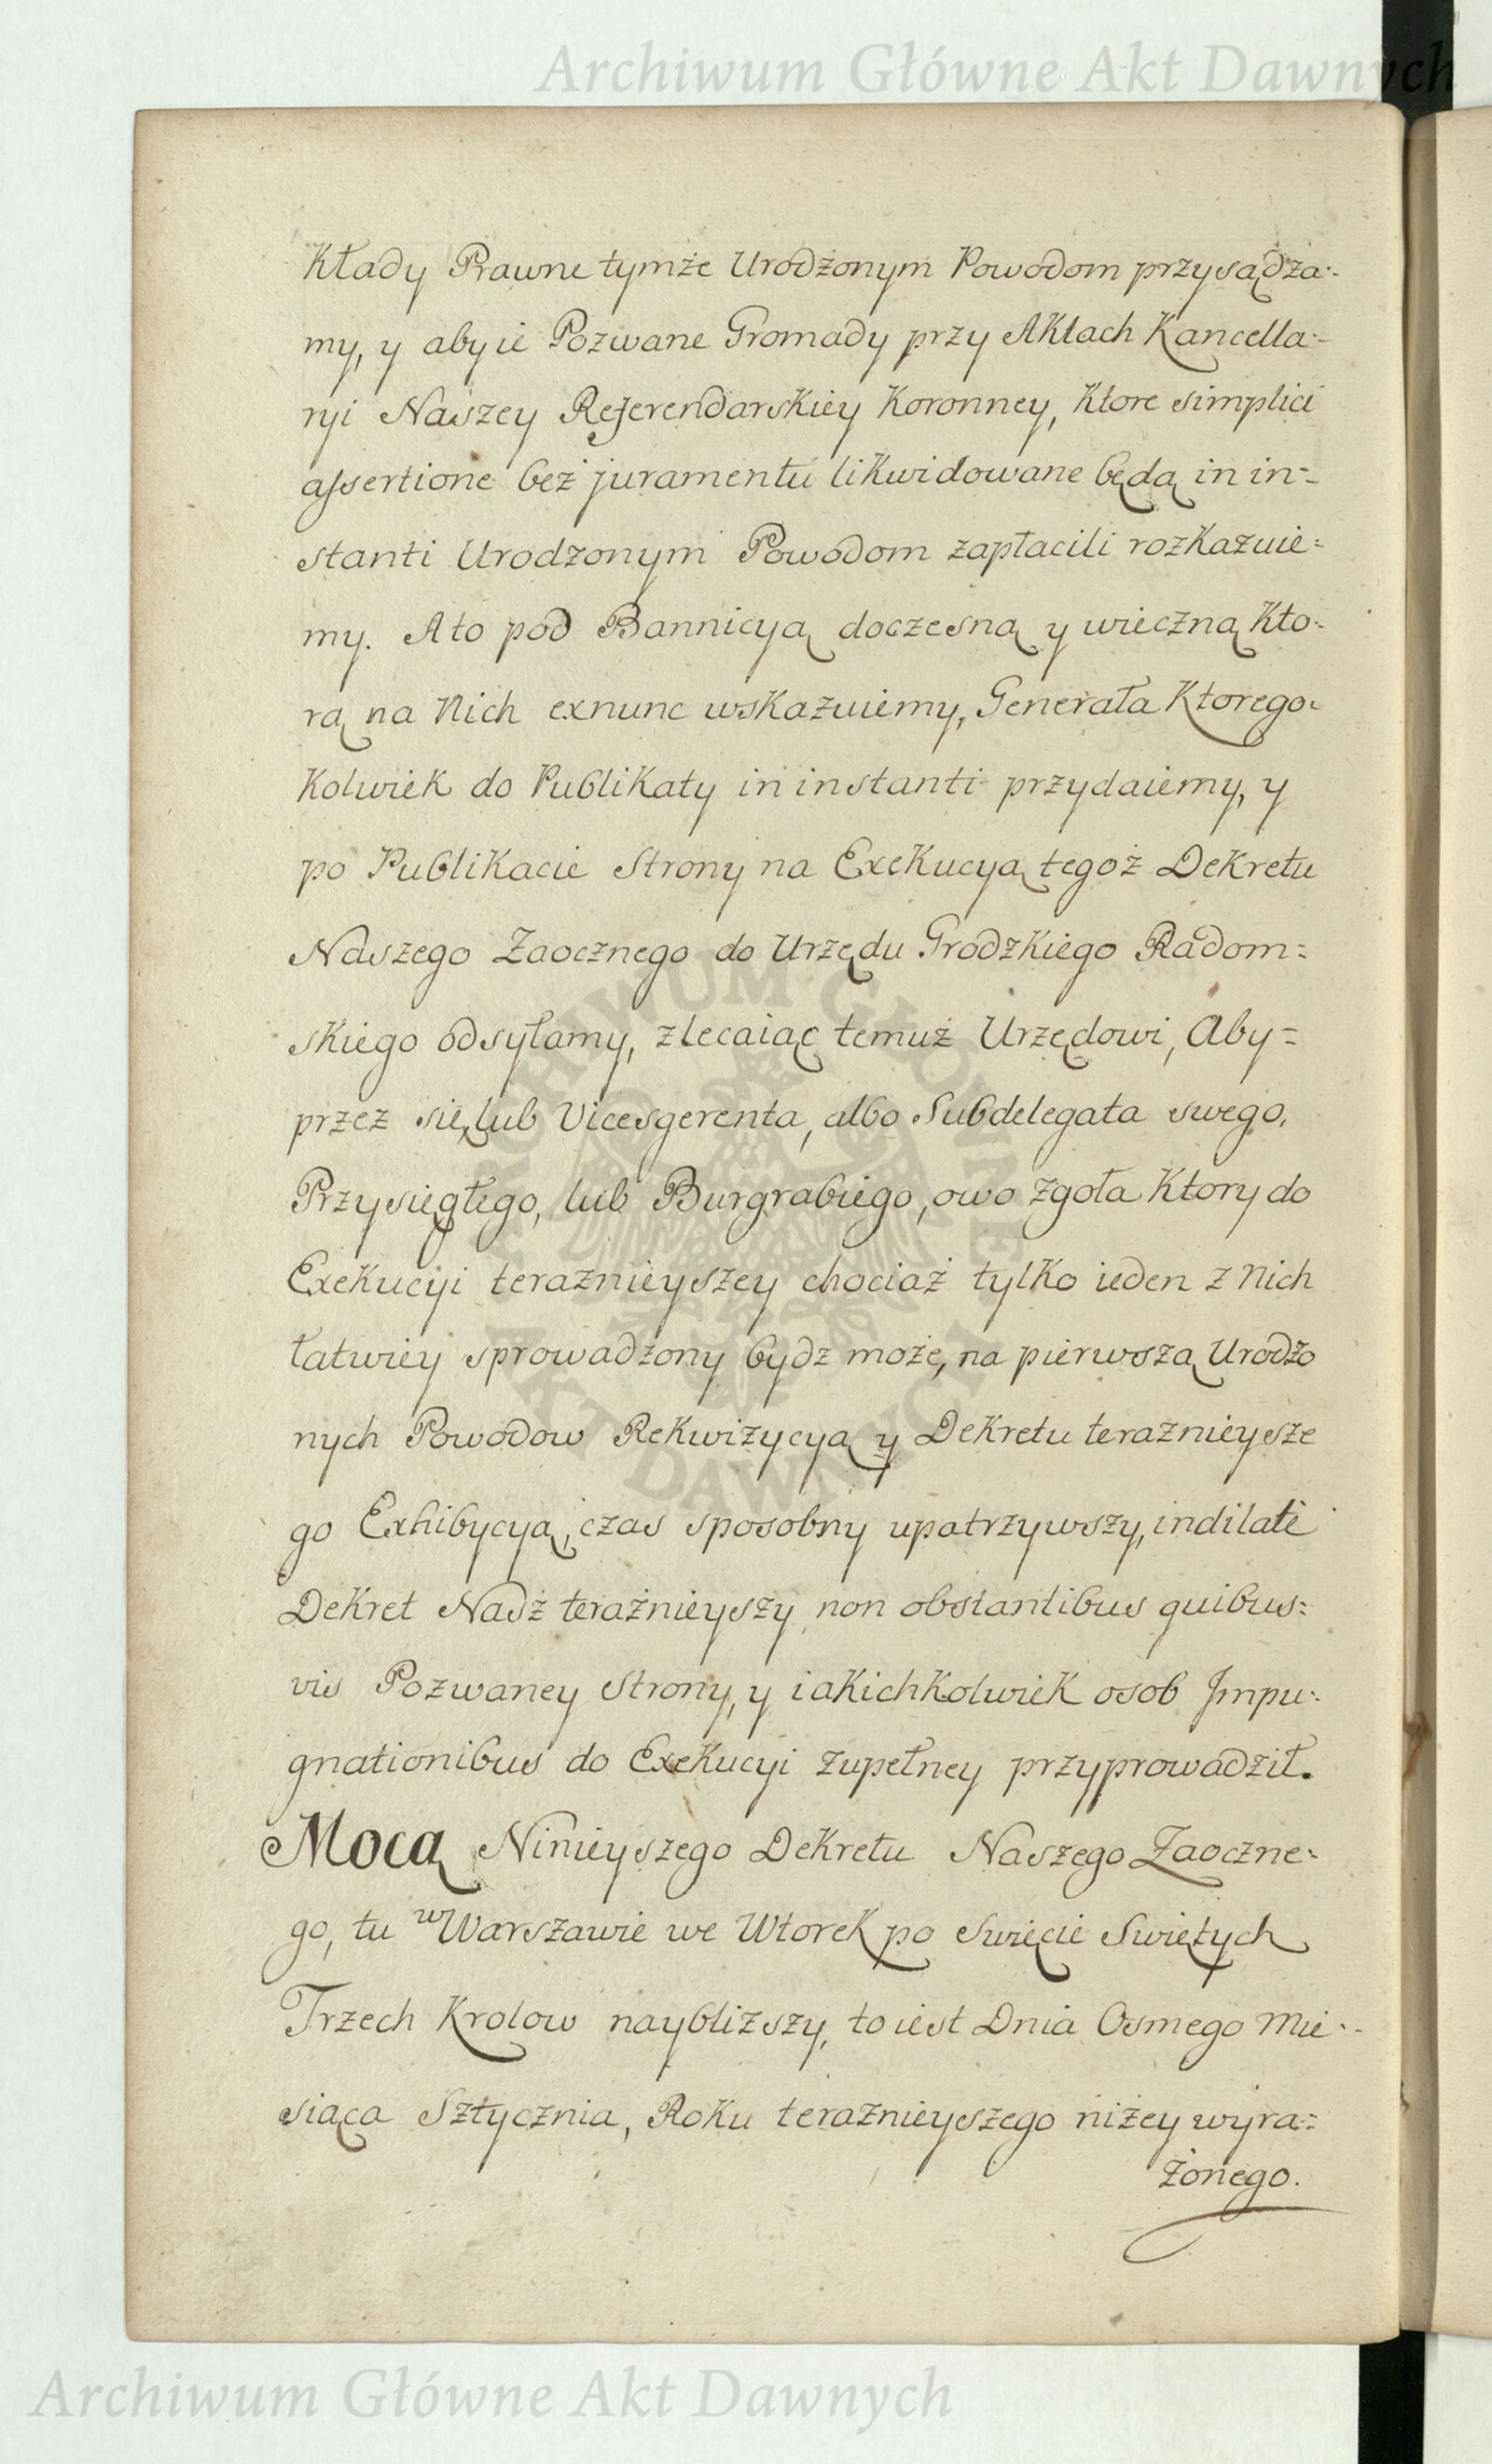 Archiwum Główne Akt Dawnych
kłady Prawne tymże Urodzonym Powodom przysądza-
my, y aby ie Pozwane Gromady przy Aktach Kancella-
ryi Naszey Referendarskiey Koronney, Ktore simplici
assertione bez juramentu likwidowane będą in in=
stanti Urodzonym Powodom zapłacili rozkazuie=
my. A to pod Bannicyą doczesną y wieczną Kto-
rą na Nich exnunc wskazuiemy, Generała Ktorego-
Kolwiek do Publikaty in instanti przydaiemy, y
po Publikacie Strony na Exekucyą tegoż Dekretu
Naszego Zaocznego do Urzędu Grodzkiego Radom=
skiego odsyłamy, zlecaiąc temuż Urzędowi, Aby=
przez się, lub Vicesgerenta, albo Subdelegata swego,
Przysięgłego, lub Burgrabiego, owo zgoła Ktory do
Exekucyi teraznieyszey chociaż tylko ieden z Nich
łatwiey sprowadzony bydz może, na pierwszą Urodzo
nych Powodow Rekwizycyą y Dekretu teraznieysze
go Exhibycyą, czas sposobny upatrzywszy, indilatè
Dekret Nasz teraźnieyszy non obstantibus quibus=
vis Pozwaney Strony, y iakichkolwiek osob Impu-
gnationibus do Exekucyi zupełney przyprowadził.
Mocą Ninieyszego Dekretu Naszego Zaoczne-
go, tu w Warszawie we Wtorek po Swięcie Swiętych
Trzech Krolow naybliższy, to iest Dnia Osmego Mie-
siąca Sztycznia, Roku teraznieyszego niżey wyra=
żonego.
ARCHIWUM GŁÓWNE
AKT DAWNYCH
Archiwum Główne Akt Dawnych